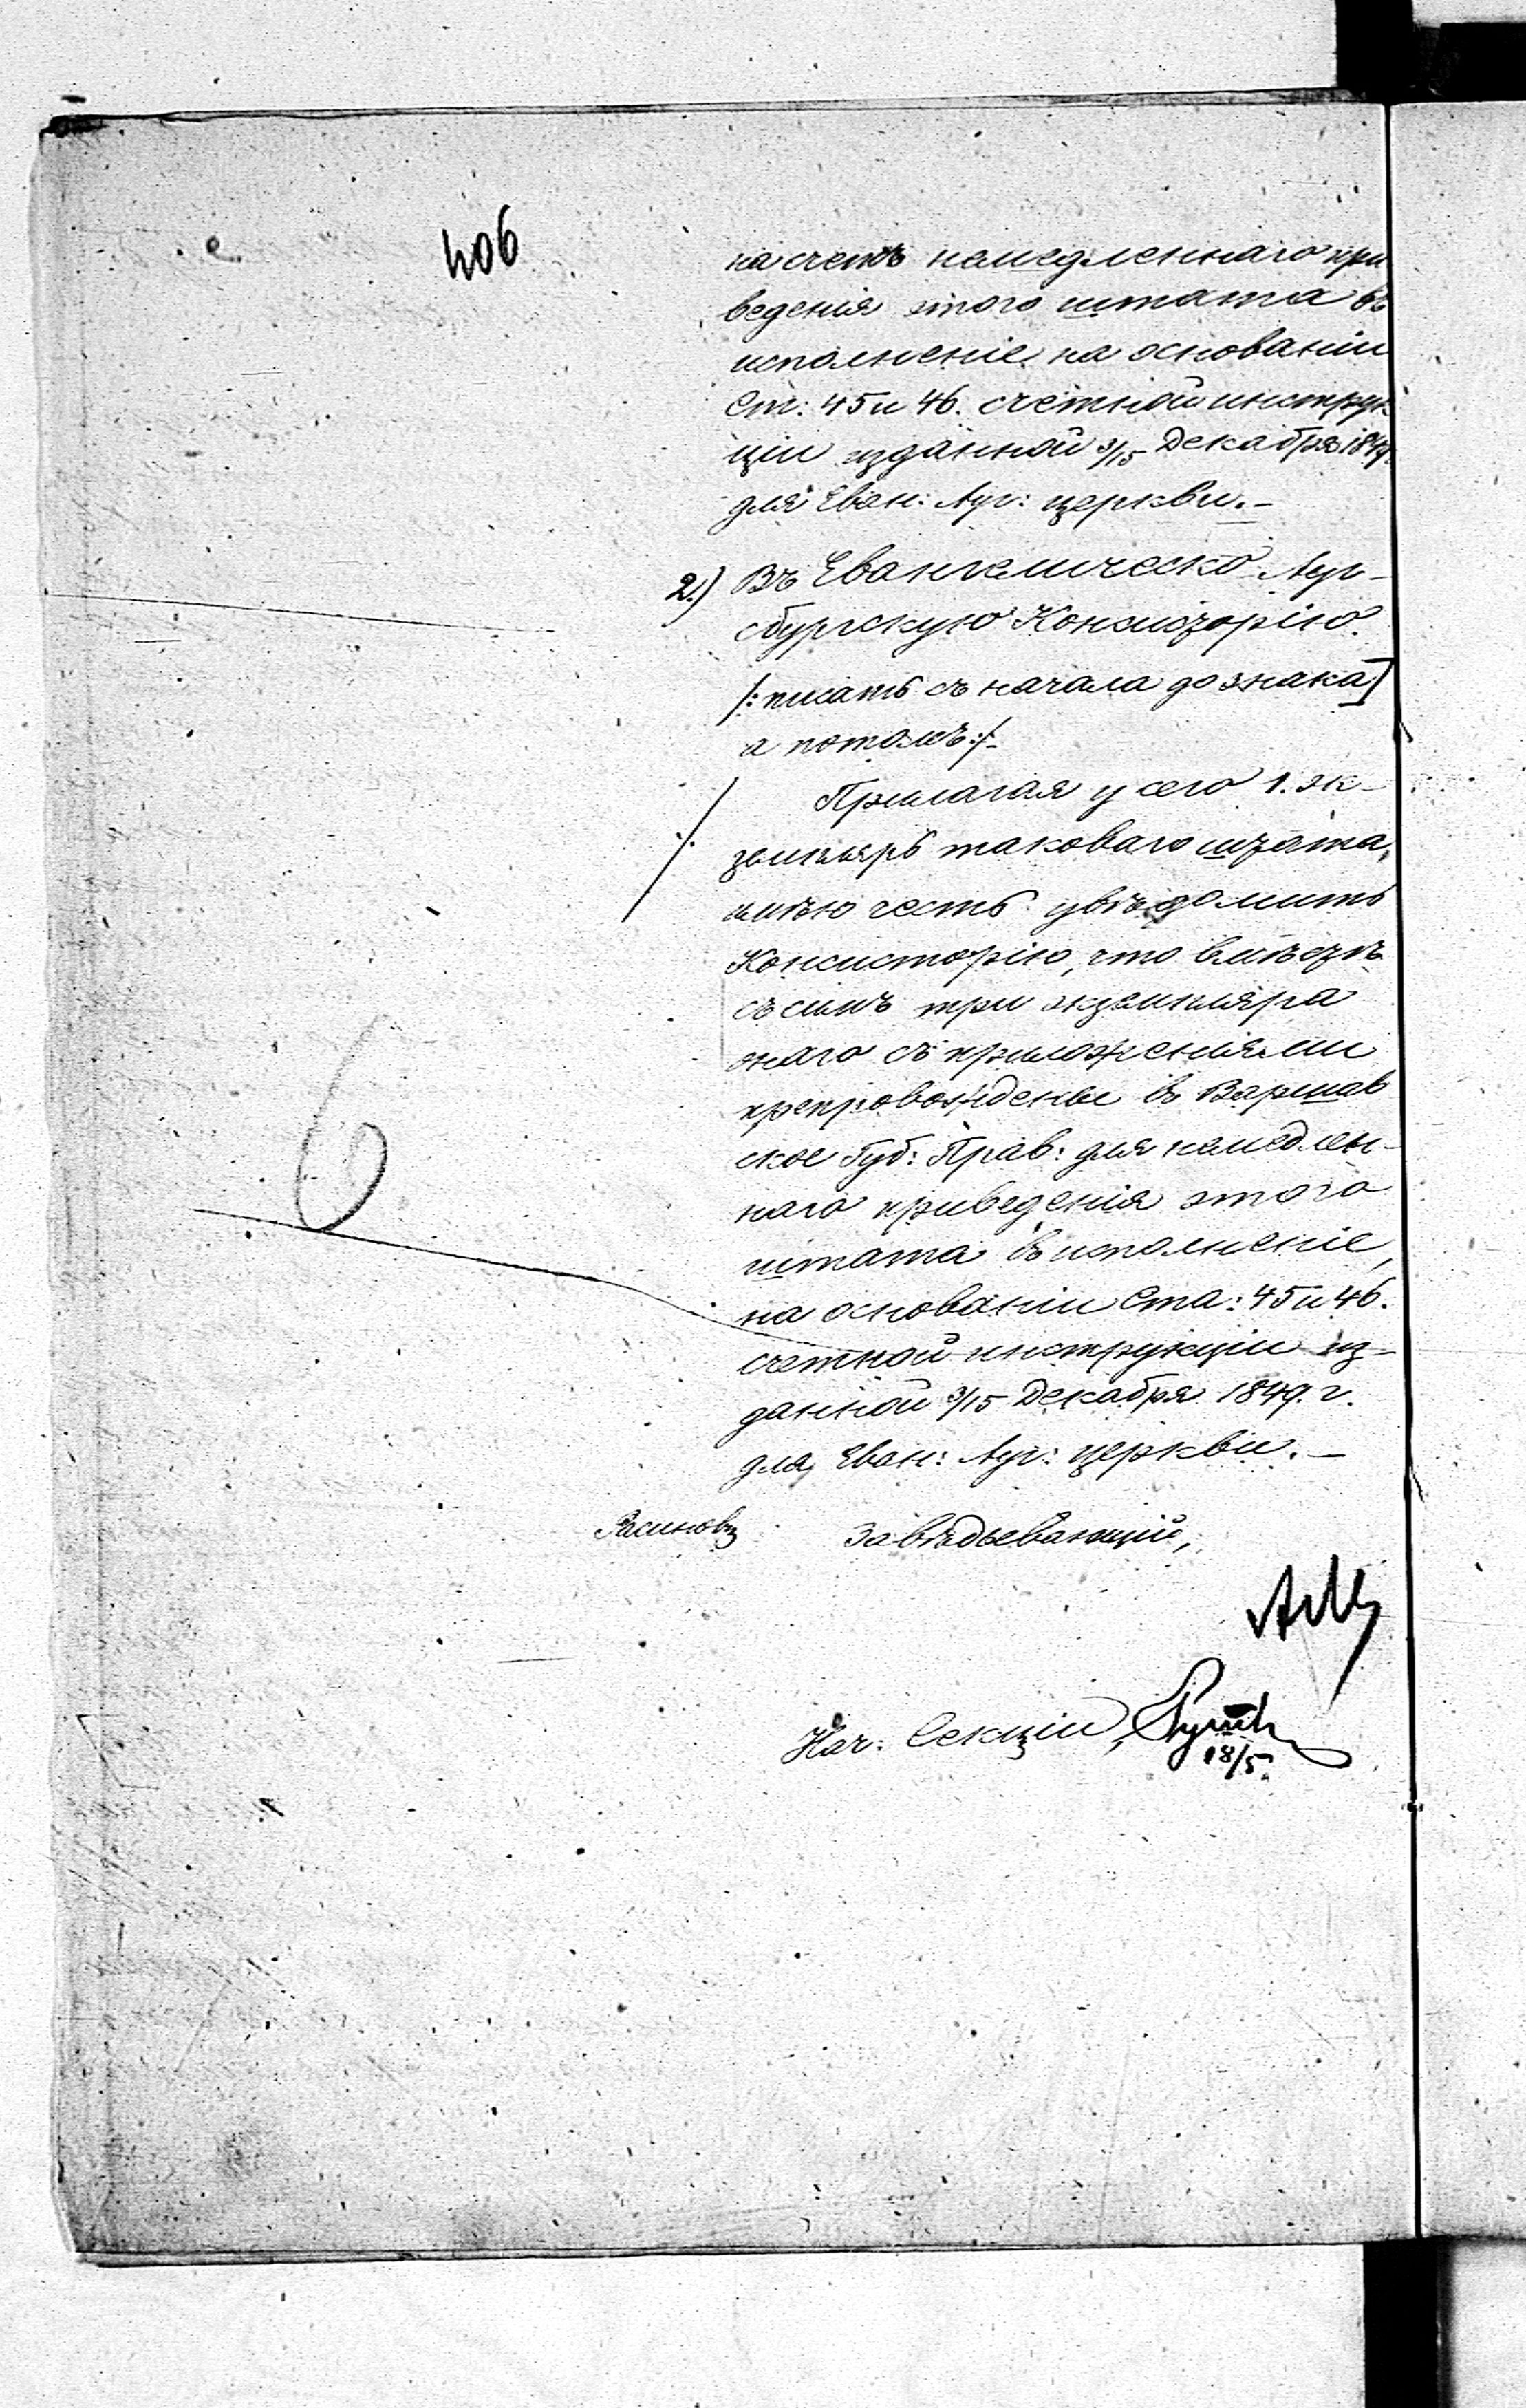 406
на счетъ немедленнаго при
ведения этого штата въ
исполненіе на основаніи
Ст: 45 и 46. счетной инструк
ціи изданной 3/15 Декабря 1849
для Еван: Ауг: церкви.-
2.) Въ Евангелическо-Ауг-
сбургскую Консисторію.
/: писать съ начала до знака]
а потомъ:/-
Прилагая у сего 1. эк-
земпляръ таковаго штата,
имѣю честь увѣдомить
Консисторію, что вмѣстѣ
съ симъ три экземпляра
онаго съ приложеніями
препровождены въ Варшав
ское Губ: Прав: для немедлен-
наго приведенія этого
штата въ исполненіе,
на основаніи Ста: 45 и 46.
счетной инструкціи из-
данной 3/15 Декабря 1849. г.
для Еван: Ауг: церкви.-
Завѣдывающій,
Нач: Секціи,
18/5.